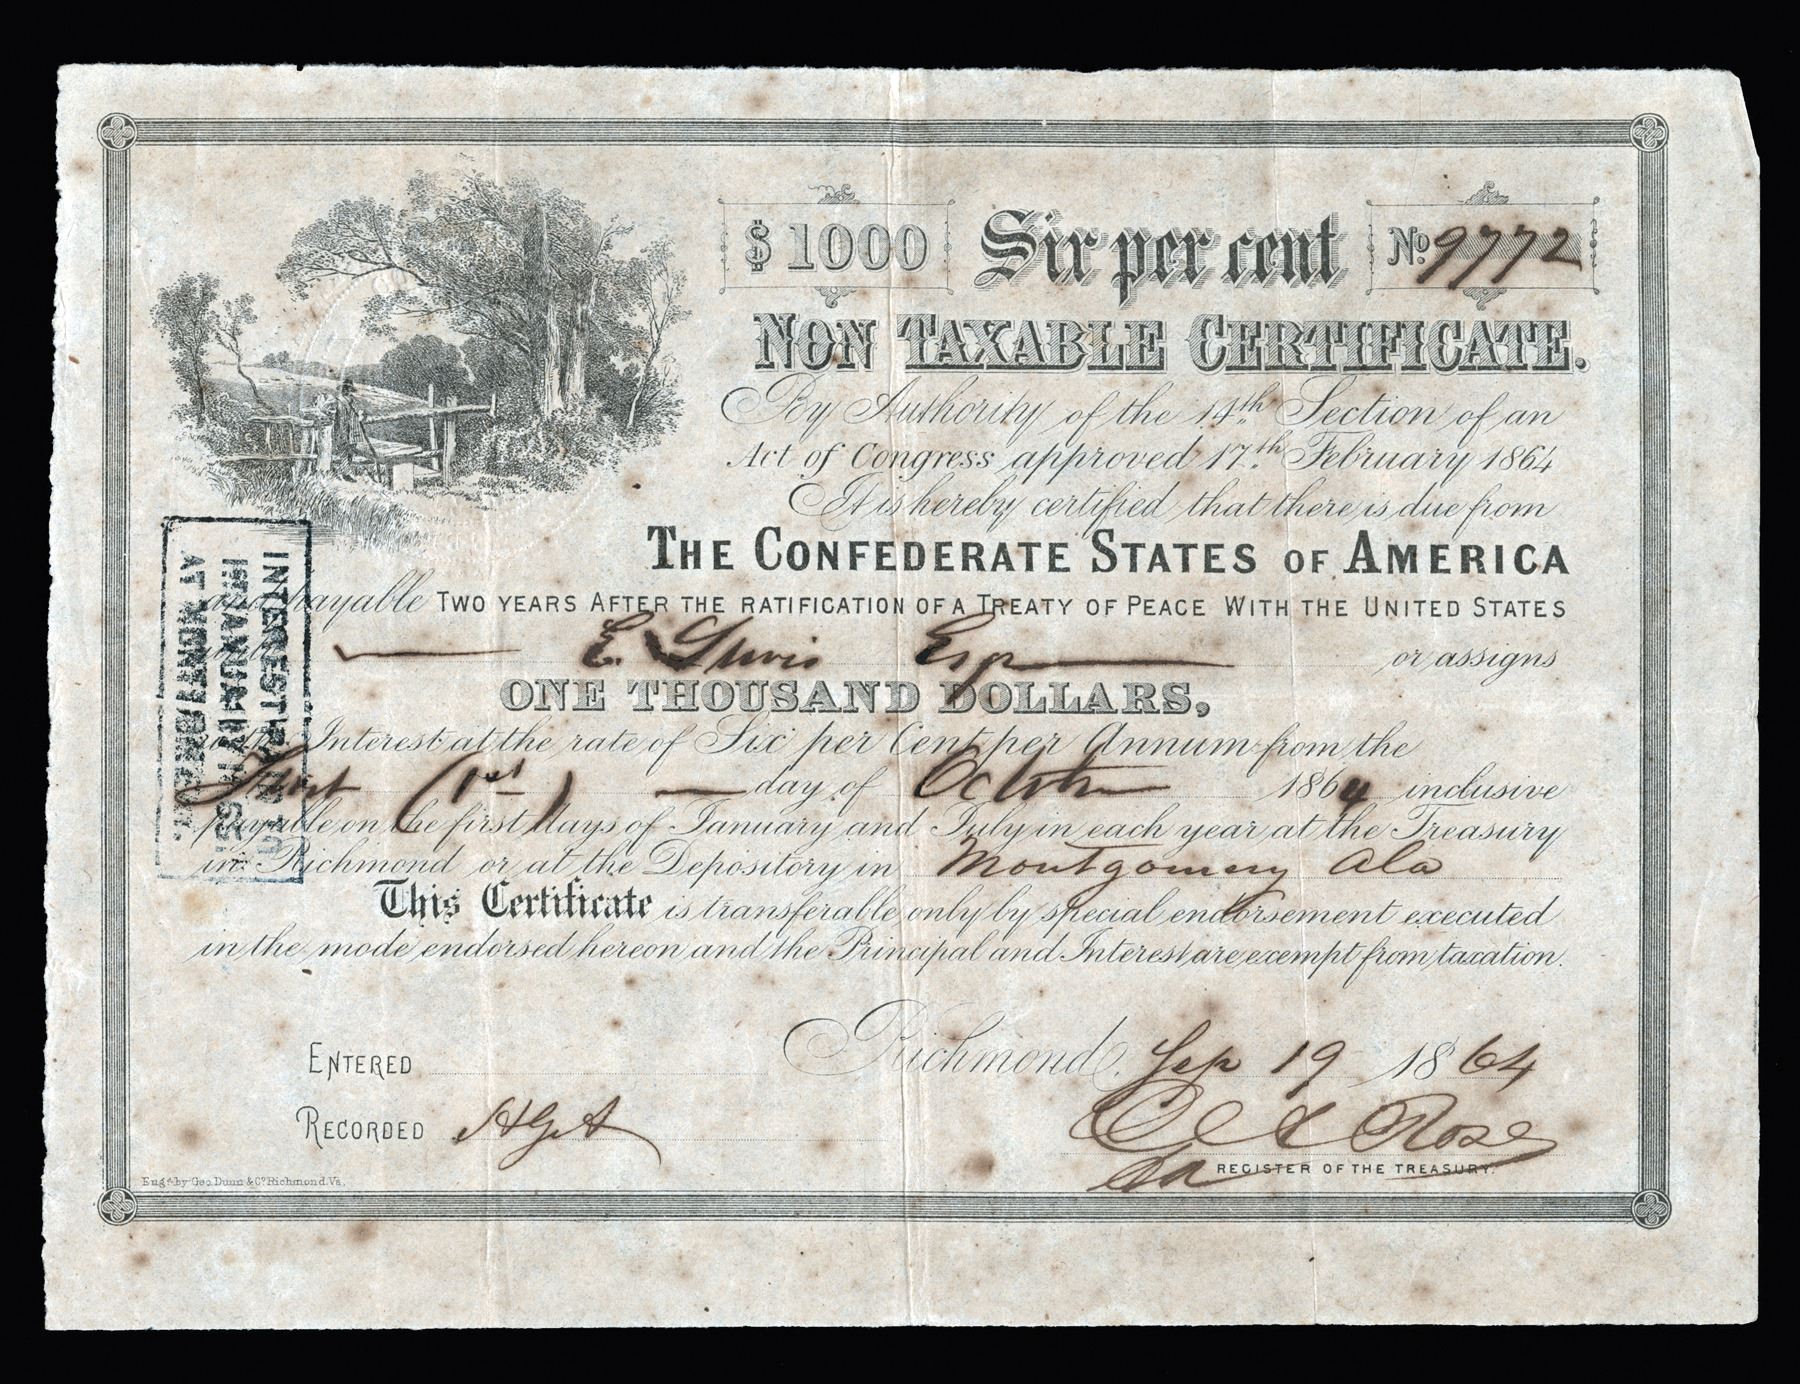 $1000 Six per cent No. 9772
NON TAXABLE CERTIFICATE.
By Authority of the 14th Section of an
Act of Congress approved 17th February 1864
It is hereby certified that there is due from
THE CONFEDERATE STATES OF AMERICA
and payable TWO YEARS AFTER THE RATIFICATION OF A TREATY OF PEACE WITH THE UNITED STATES
E. Lewis Esqr or assigns
ONE THOUSAND DOLLARS,
Interest at the rate of Six per Cent per Annum from the
First (1st) day of October 1864 inclusive
payable on the first days of January and July in each year at the Treasury
in Richmond or at the Depository in Montgomery Ala
This Certificate is transferable only by special endorsement executed
in the mode endorsed hereon and the Principal and Interest are exempt from taxation.
Richmond, Sep 19 1864
ENTERED
RECORDED
REGISTER OF THE TREASURY.
Engd. by Geo. Dunn & Co. Richmond. Va.
INTEREST PAID TO
1st JANUARY 1865
AT MONTGOMERY.